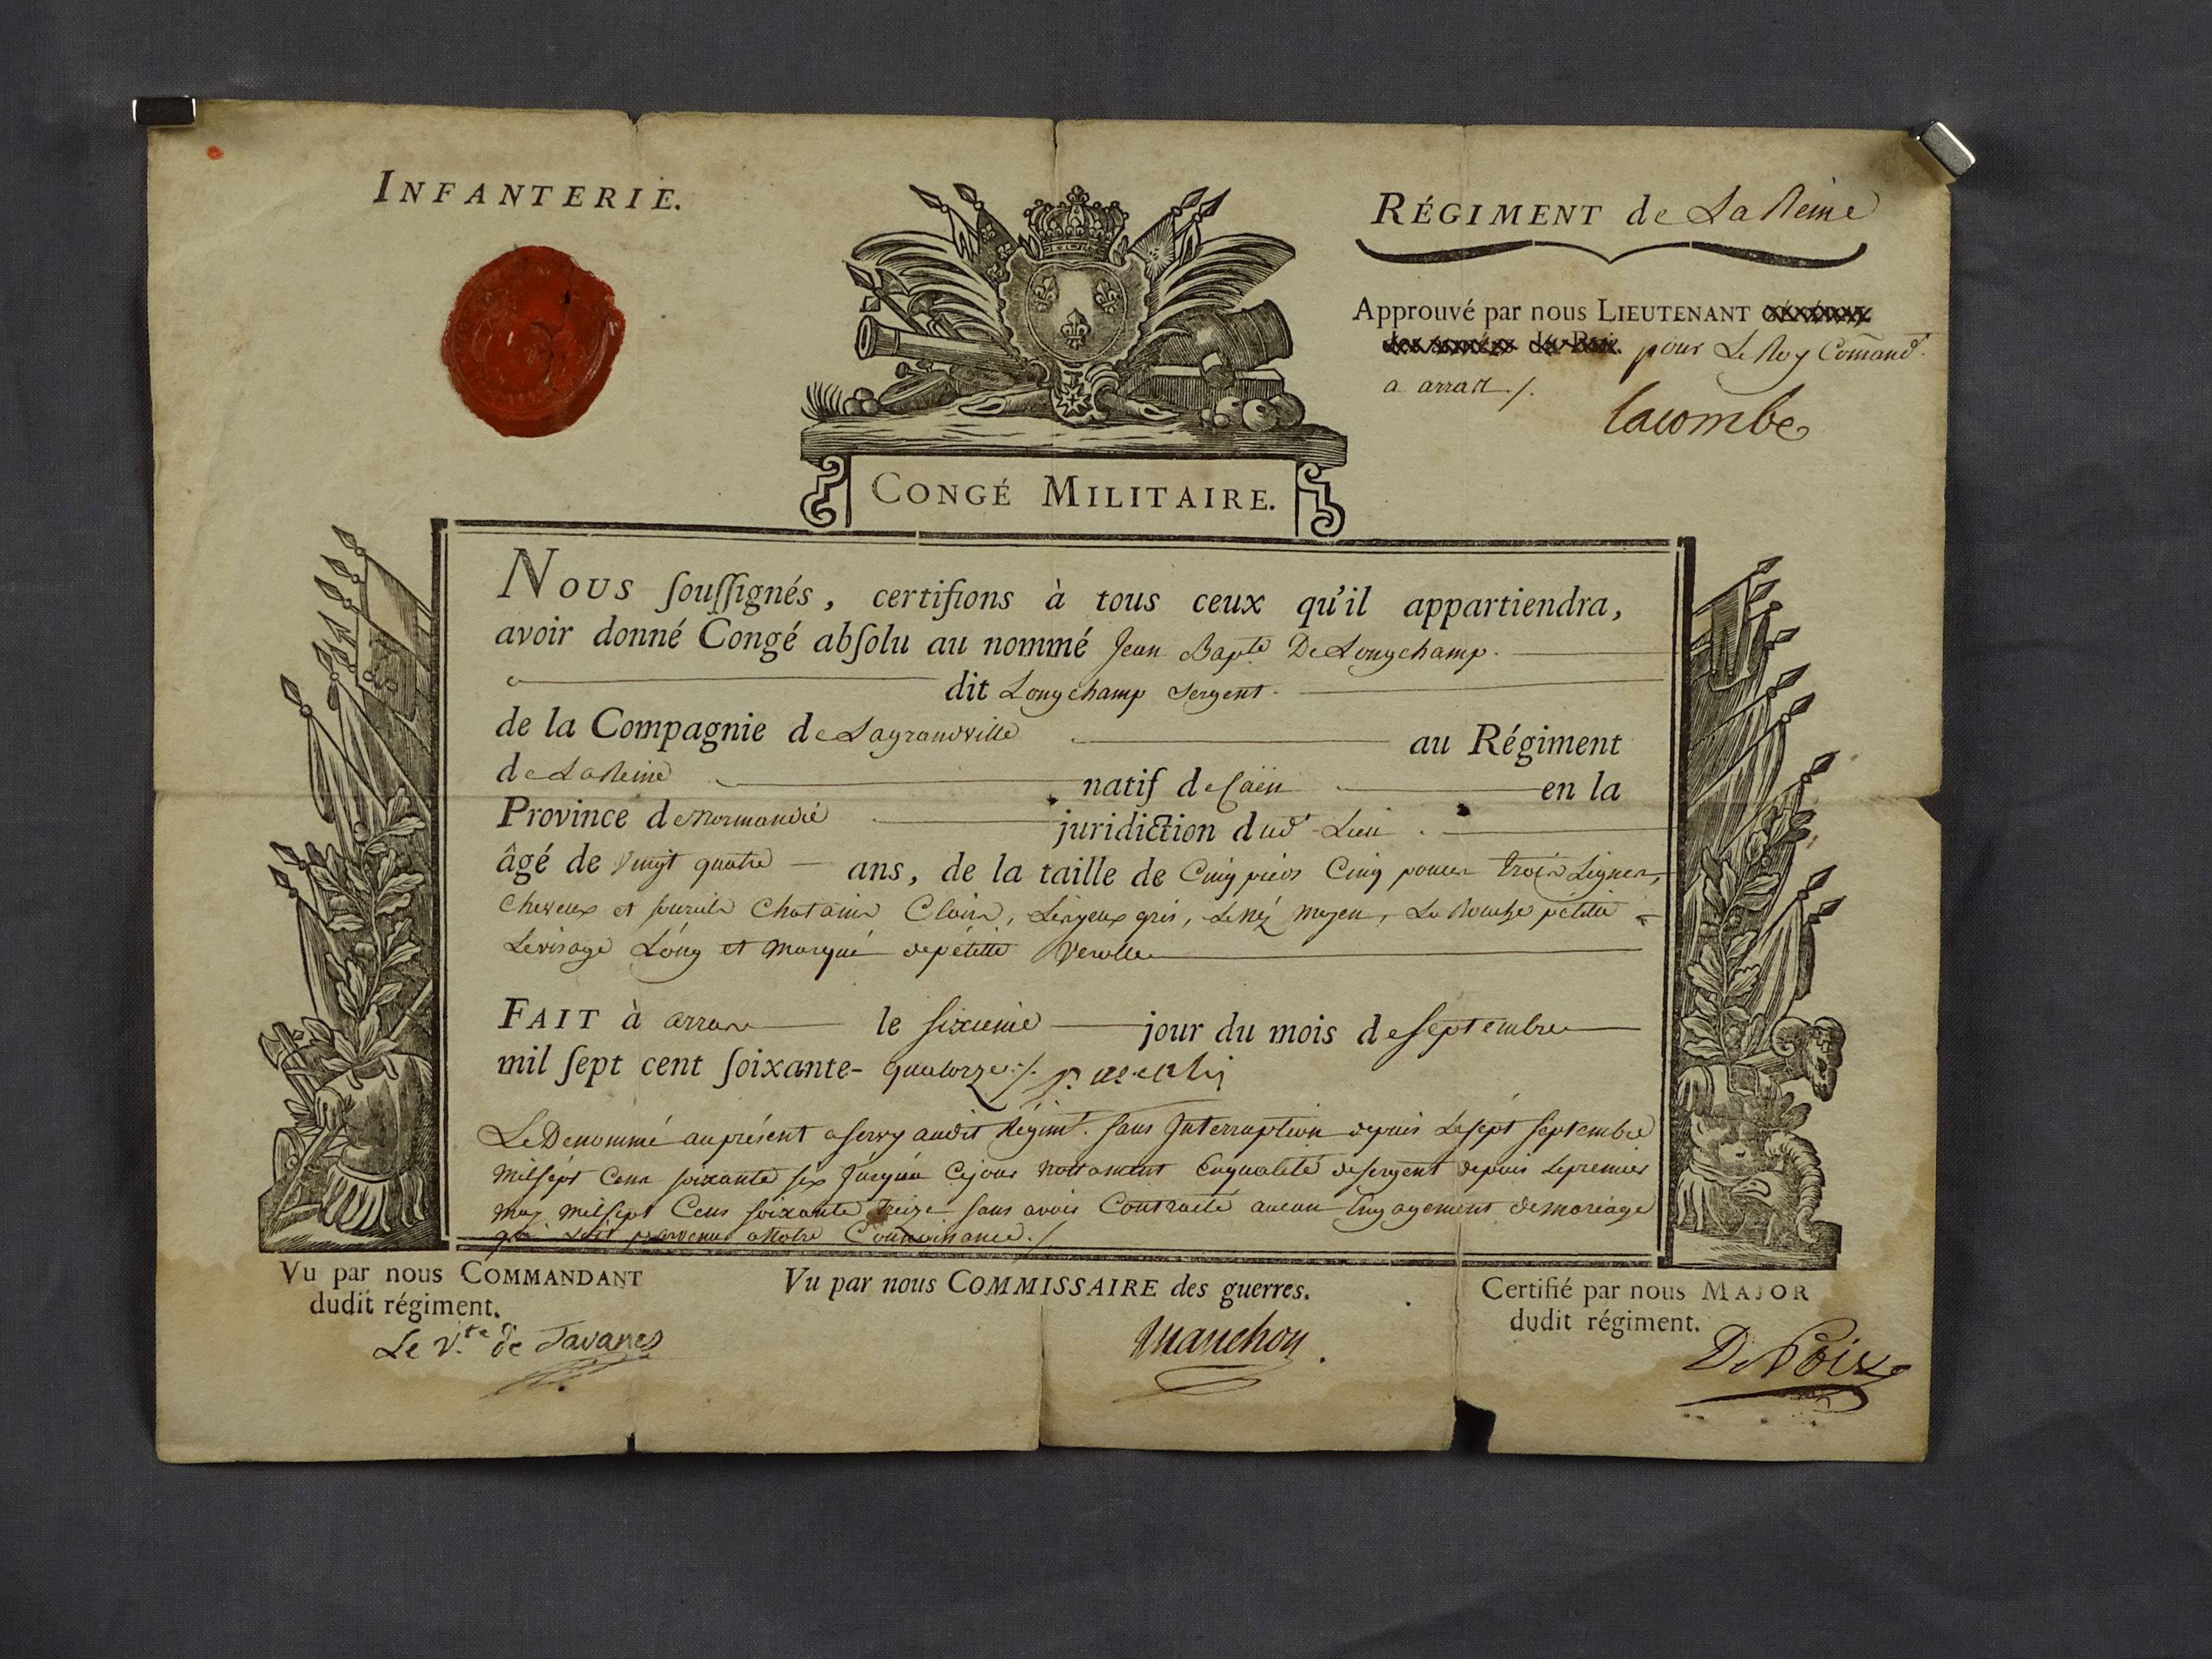 INFANTERIE.
RÉGIMENT de La Reine
Approuvé par nous LIEUTENANT
pour Le Roy Com̄and.^t
a arras ./.
Lacombe
CONGÉ MILITAIRE.
Nous ſouſſignés, certifions à tous ceux qu'il appartiendra,
avoir donné Congé abſolu au nommé Jean Bapte De Longchamp.
dit Longchamp Sergent.
de la Compagnie de Lagrandville au Régiment
de La Reine natif de Caën en la
Province de Normandie juridiction dud.^t Lieu.
âgé de Vingt quatre ans, de la taille de Cinq pieds Cinq pouces trois Lignes,
Cheveux et sourcils Chatains Clairs, Les yeux gris, Le néz moyen, La Bouche pétitte
Le visage Long et marqué de pétitte Verolle
FAIT à arras le sixieme jour du mois de septembre
mil ſept cent ſoixante- quatorze ./.
Le Denommé au présent a servy audit Régim.^t sans Interruption depuis Le sept septembre
mil sept Cens soixante six Jusqu'a Ce jour nottament En qualité de sergent depuis le premier
may mil sept Cens soixante treize sans avoir Contracté aucun Engagement de mariage
qui soit parvenu a Notre Connoissance ./
Vu par nous COMMANDANT
dudit régiment.
Le V.^te de Tavanes
Vu par nous COMMISSAIRE des guerres.
Manchon
Certifié par nous MAJOR
dudit régiment.
De Poix